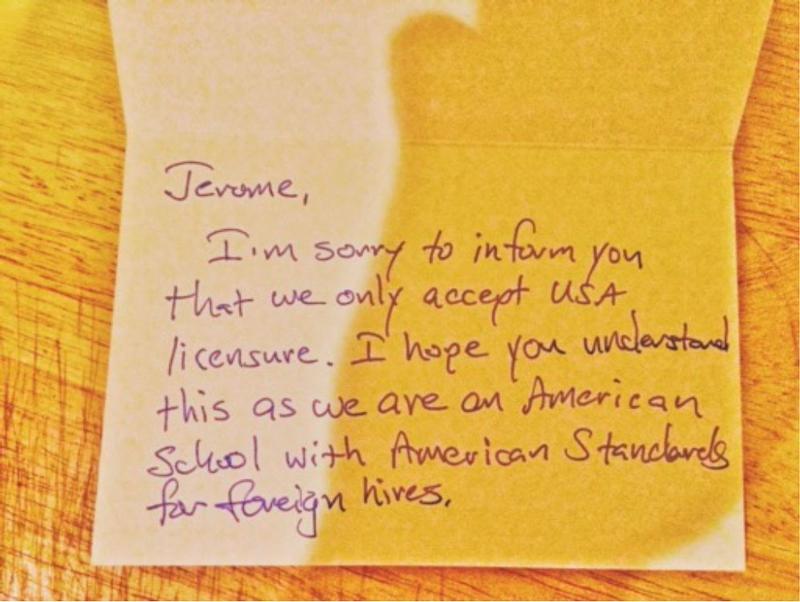 Jerome,
I'm sorry to inform you
that we only accept USA
licensure. I hope you understand
this as we are an American
School with American Standards
for foreign hires.